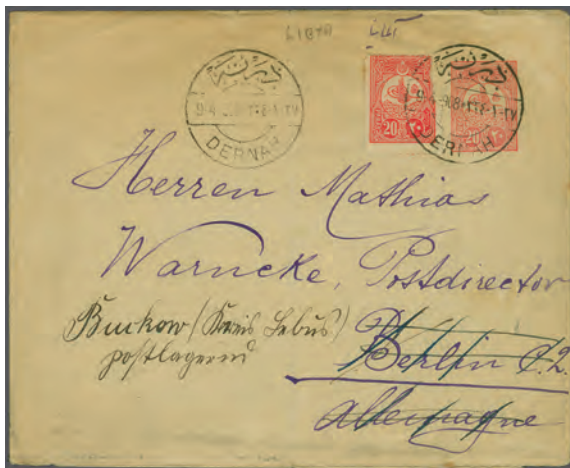 LIBYA
9·4 908
DERNAH
20
20
DERNAH
Herren Mathias
Warncke, Postdirector
Buckow (Kreis Lebus)
postlagernd
Berlin C. 2.
Allemagne